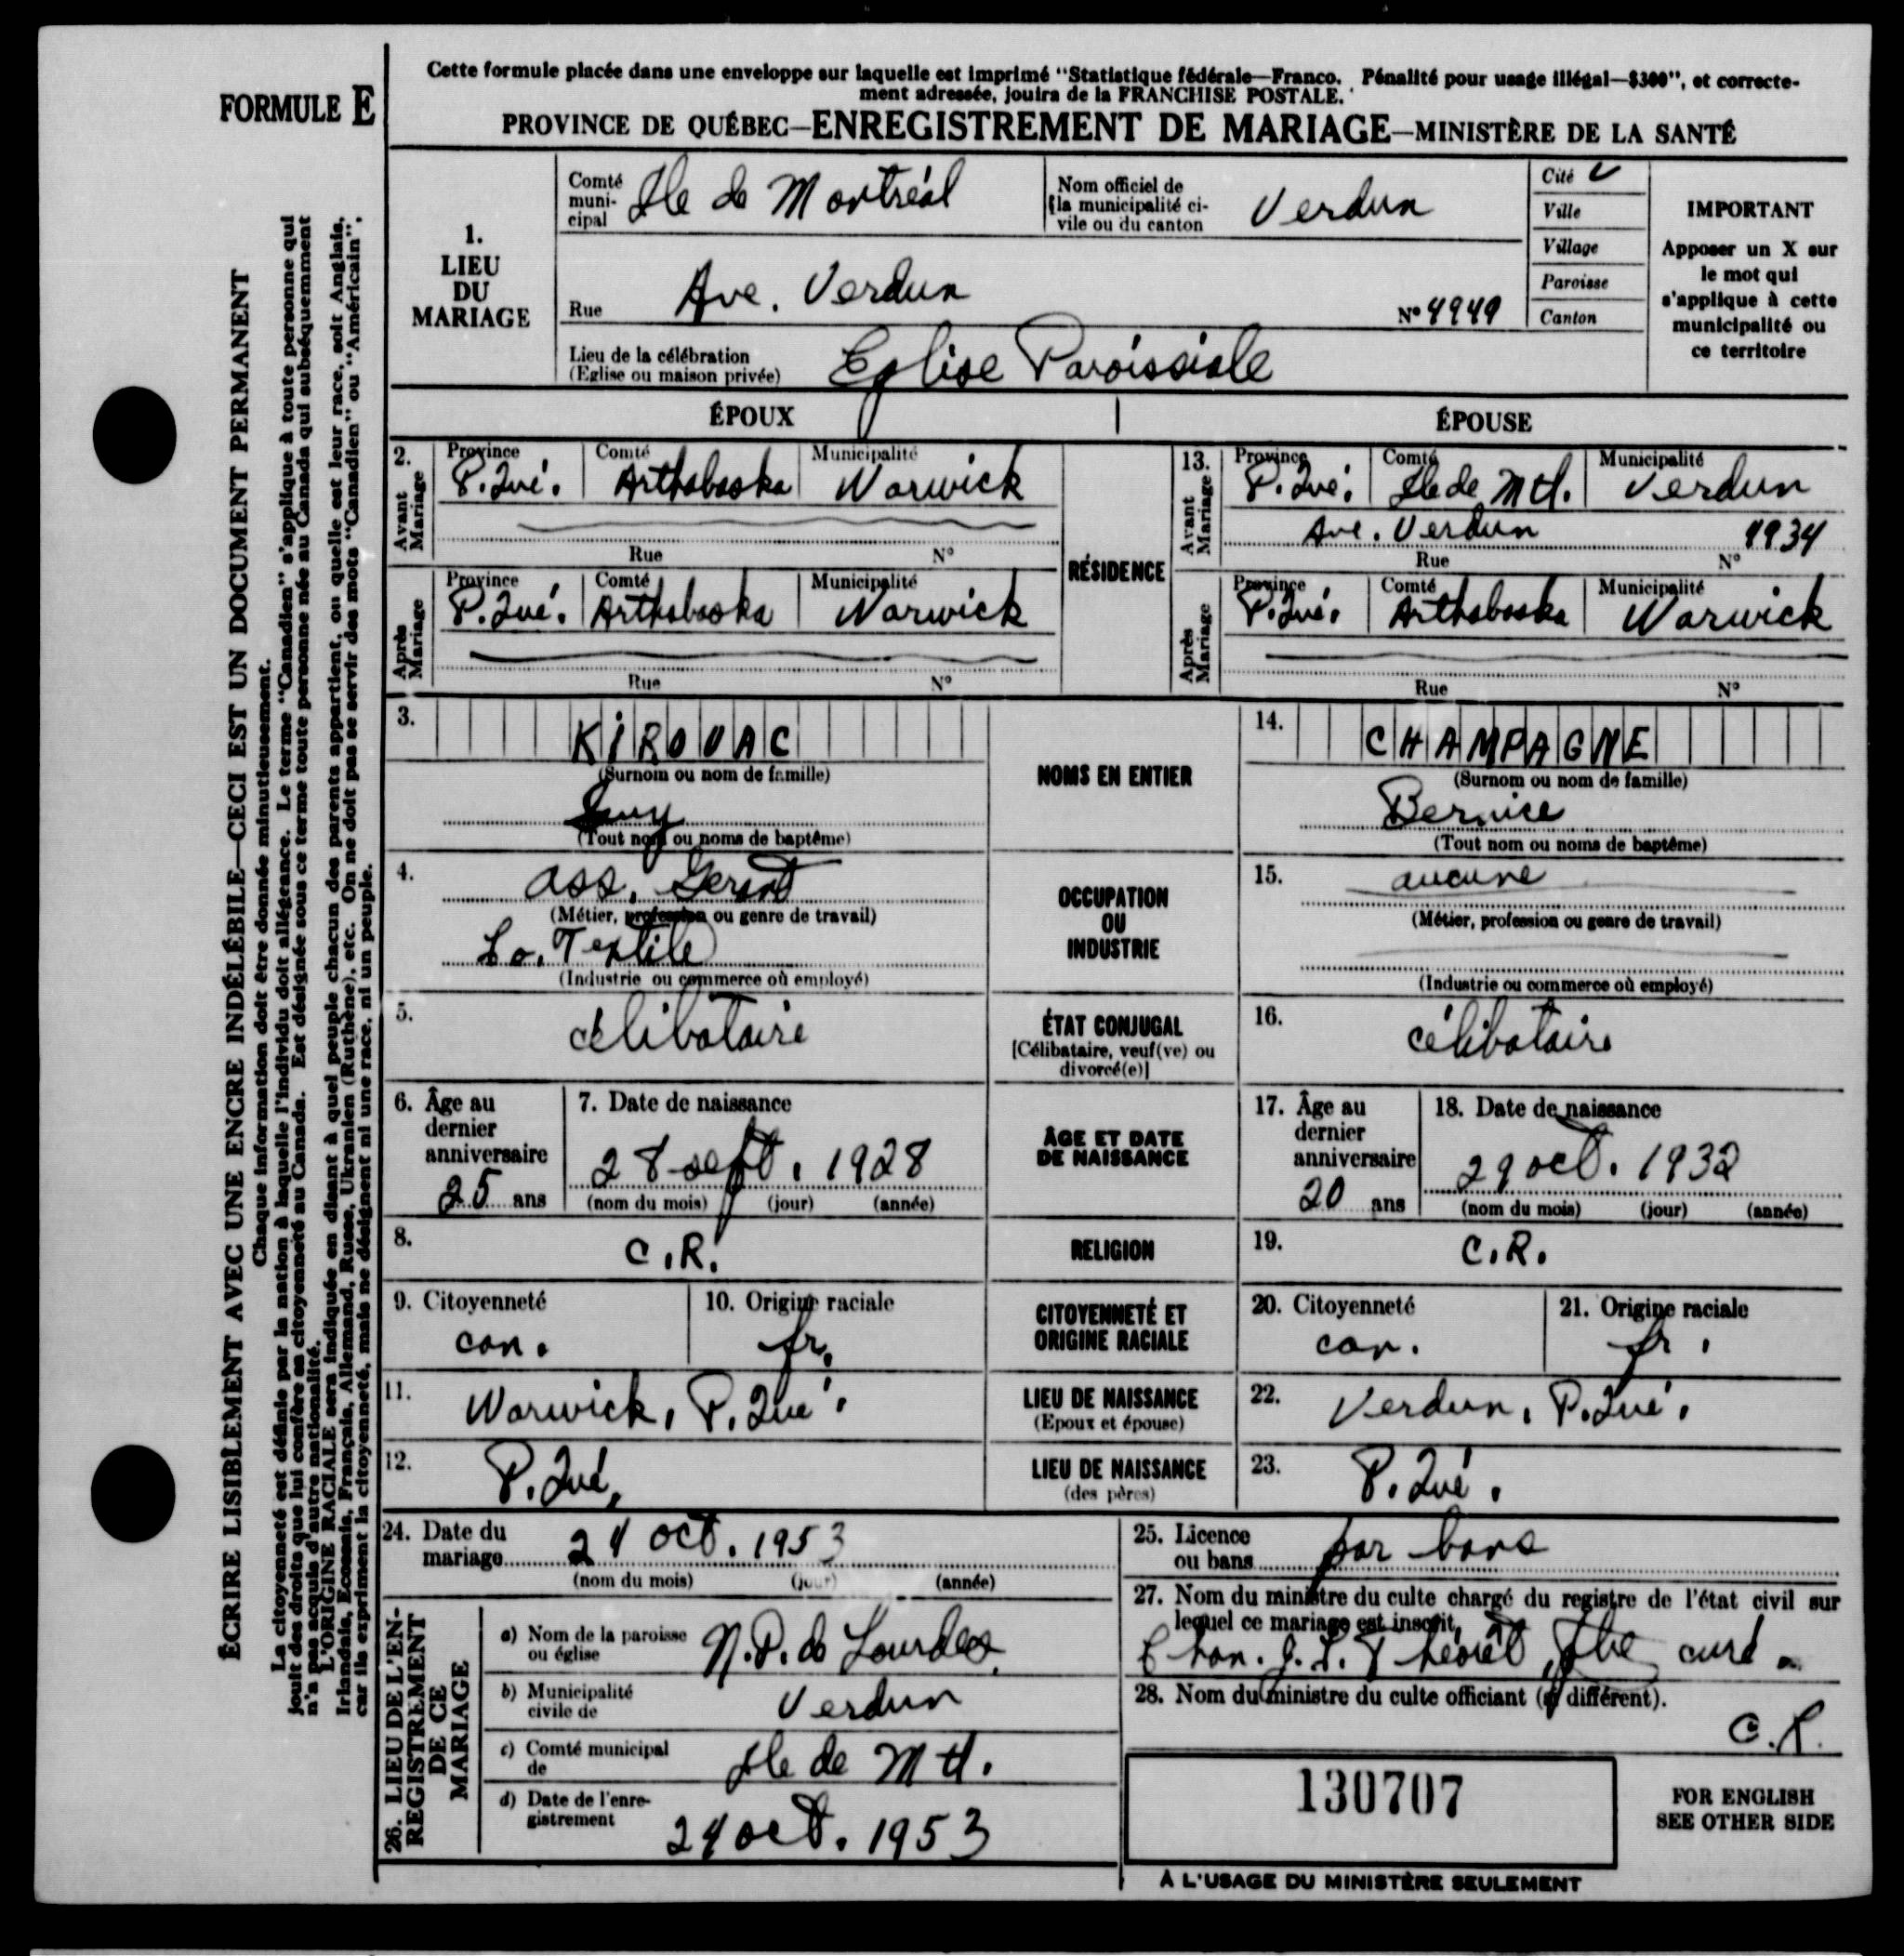 Cette formule placée dans une enveloppe sur laquelle est imprimé "Statistique fédérale—Franco. Pénalité pour usage illégal—$300", et correcte-
ment adressée, jouira de la FRANCHISE POSTALE.
FORMULE E
PROVINCE DE QUÉBEC—ENREGISTREMENT DE MARIAGE—MINISTÈRE DE LA SANTÉ
ÉCRIRE LISIBLEMENT AVEC UNE ENCRE INDÉLÉBILE—CECI EST UN DOCUMENT PERMANENT
Chaque information doit être donnée minutieusement.
La citoyenneté est définie par la nation à laquelle l'individu doit allégeance. Le terme "Canadien" s'applique à toute personne qui
jouit des droits que lui confère sa citoyenneté au Canada. Est désignée sous ce terme toute personne née au Canada qui subséquemment
n'a pas acquis d'autre nationalité.
L'ORIGINE RACIALE sera indiquée en disant à quel peuple chacun des parents appartient, ou quelle est leur race, soit Anglais,
Irlandais, Ecossais, Français, Allemand, Russe, Ukranien (Ruthène), etc. On ne doit pas se servir des mots "Canadien" ou "Américain",
car ils expriment la citoyenneté, mais ne désignent ni une race, ni un peuple.
1.
LIEU
DU
MARIAGE
Comté
muni-
cipal Ile de Montréal
Nom officiel de
la municipalité ci-
vile ou du canton Verdun
Cité
Ville
Village
Paroisse
Canton
IMPORTANT
Apposer un X sur
le mot qui
s'applique à cette
municipalité ou
ce territoire
Rue Ave. Verdun N° 4949
Lieu de la célébration
(Eglise ou maison privée) Eglise Paroissiale
ÉPOUX
ÉPOUSE
RÉSIDENCE
2. Avant Mariage
Province Comté Municipalité
P. Qué. Arthabaska Warwick
Rue N°
Après Mariage
Province Comté Municipalité
P. Qué. Arthabaska Warwick
Rue N°
13. Avant Mariage
Province Comté Municipalité
P. Qué. Ile de Mtl. Verdun
Ave. Verdun
Rue N°
Après Mariage
Province Comté Municipalité
P. Qué. Arthabaska Warwick
Rue N°
3. KIROUAC
(Surnom ou nom de famille)
Guy
(Tout nom ou noms de baptême)
NOMS EN ENTIER
14. CHAMPAGNE
(Surnom ou nom de famille)
Bernice
(Tout nom ou noms de baptême)
4. Ass. Gerant
(Métier, profession ou genre de travail)
Textile
(Industrie ou commerce où employé)
OCCUPATION
OU
INDUSTRIE
15. aucune
(Métier, profession ou genre de travail)
(Industrie ou commerce où employé)
5. célibataire
ÉTAT CONJUGAL
[Célibataire, veuf(ve) ou
divorcé(e)]
16. célibataire
6. Âge au
dernier
anniversaire
25 ans
7. Date de naissance
28 sept. 1928
(nom du mois) (jour) (année)
ÂGE ET DATE
DE NAISSANCE
17. Âge au
dernier
anniversaire
20 ans
18. Date de naissance
29 oct. 1932
(nom du mois) (jour) (année)
8. C.R.
RELIGION
19. C.R.
9. Citoyenneté
can.
10. Origine raciale
fr.
CITOYENNETÉ ET
ORIGINE RACIALE
20. Citoyenneté
can.
21. Origine raciale
fr.
11. Warwick, P. Qué.
LIEU DE NAISSANCE
(Epoux et épouse)
22. Verdun, P. Qué.
12. P. Qué.
LIEU DE NAISSANCE
(des pères)
23. P. Qué.
24. Date du
mariage 24 oct. 1953
(nom du mois) (jour) (année)
25. Licence
ou bans par bans
26. LIEU DE L'EN-
REGISTREMENT
DE CE
MARIAGE
a) Nom de la paroisse
ou église N.D. de Lourdes
b) Municipalité
civile de Verdun
c) Comté municipal
de Ile de Mtl.
d) Date de l'enre-
gistrement 24 oct. 1953
27. Nom du ministre du culte chargé du registre de l'état civil sur
lequel ce mariage est inscrit,
Chan. J. Théorêt, ptre curé
28. Nom du ministre du culte officiant (si différent).
130707
FOR ENGLISH
SEE OTHER SIDE
À L'USAGE DU MINISTÈRE SEULEMENT